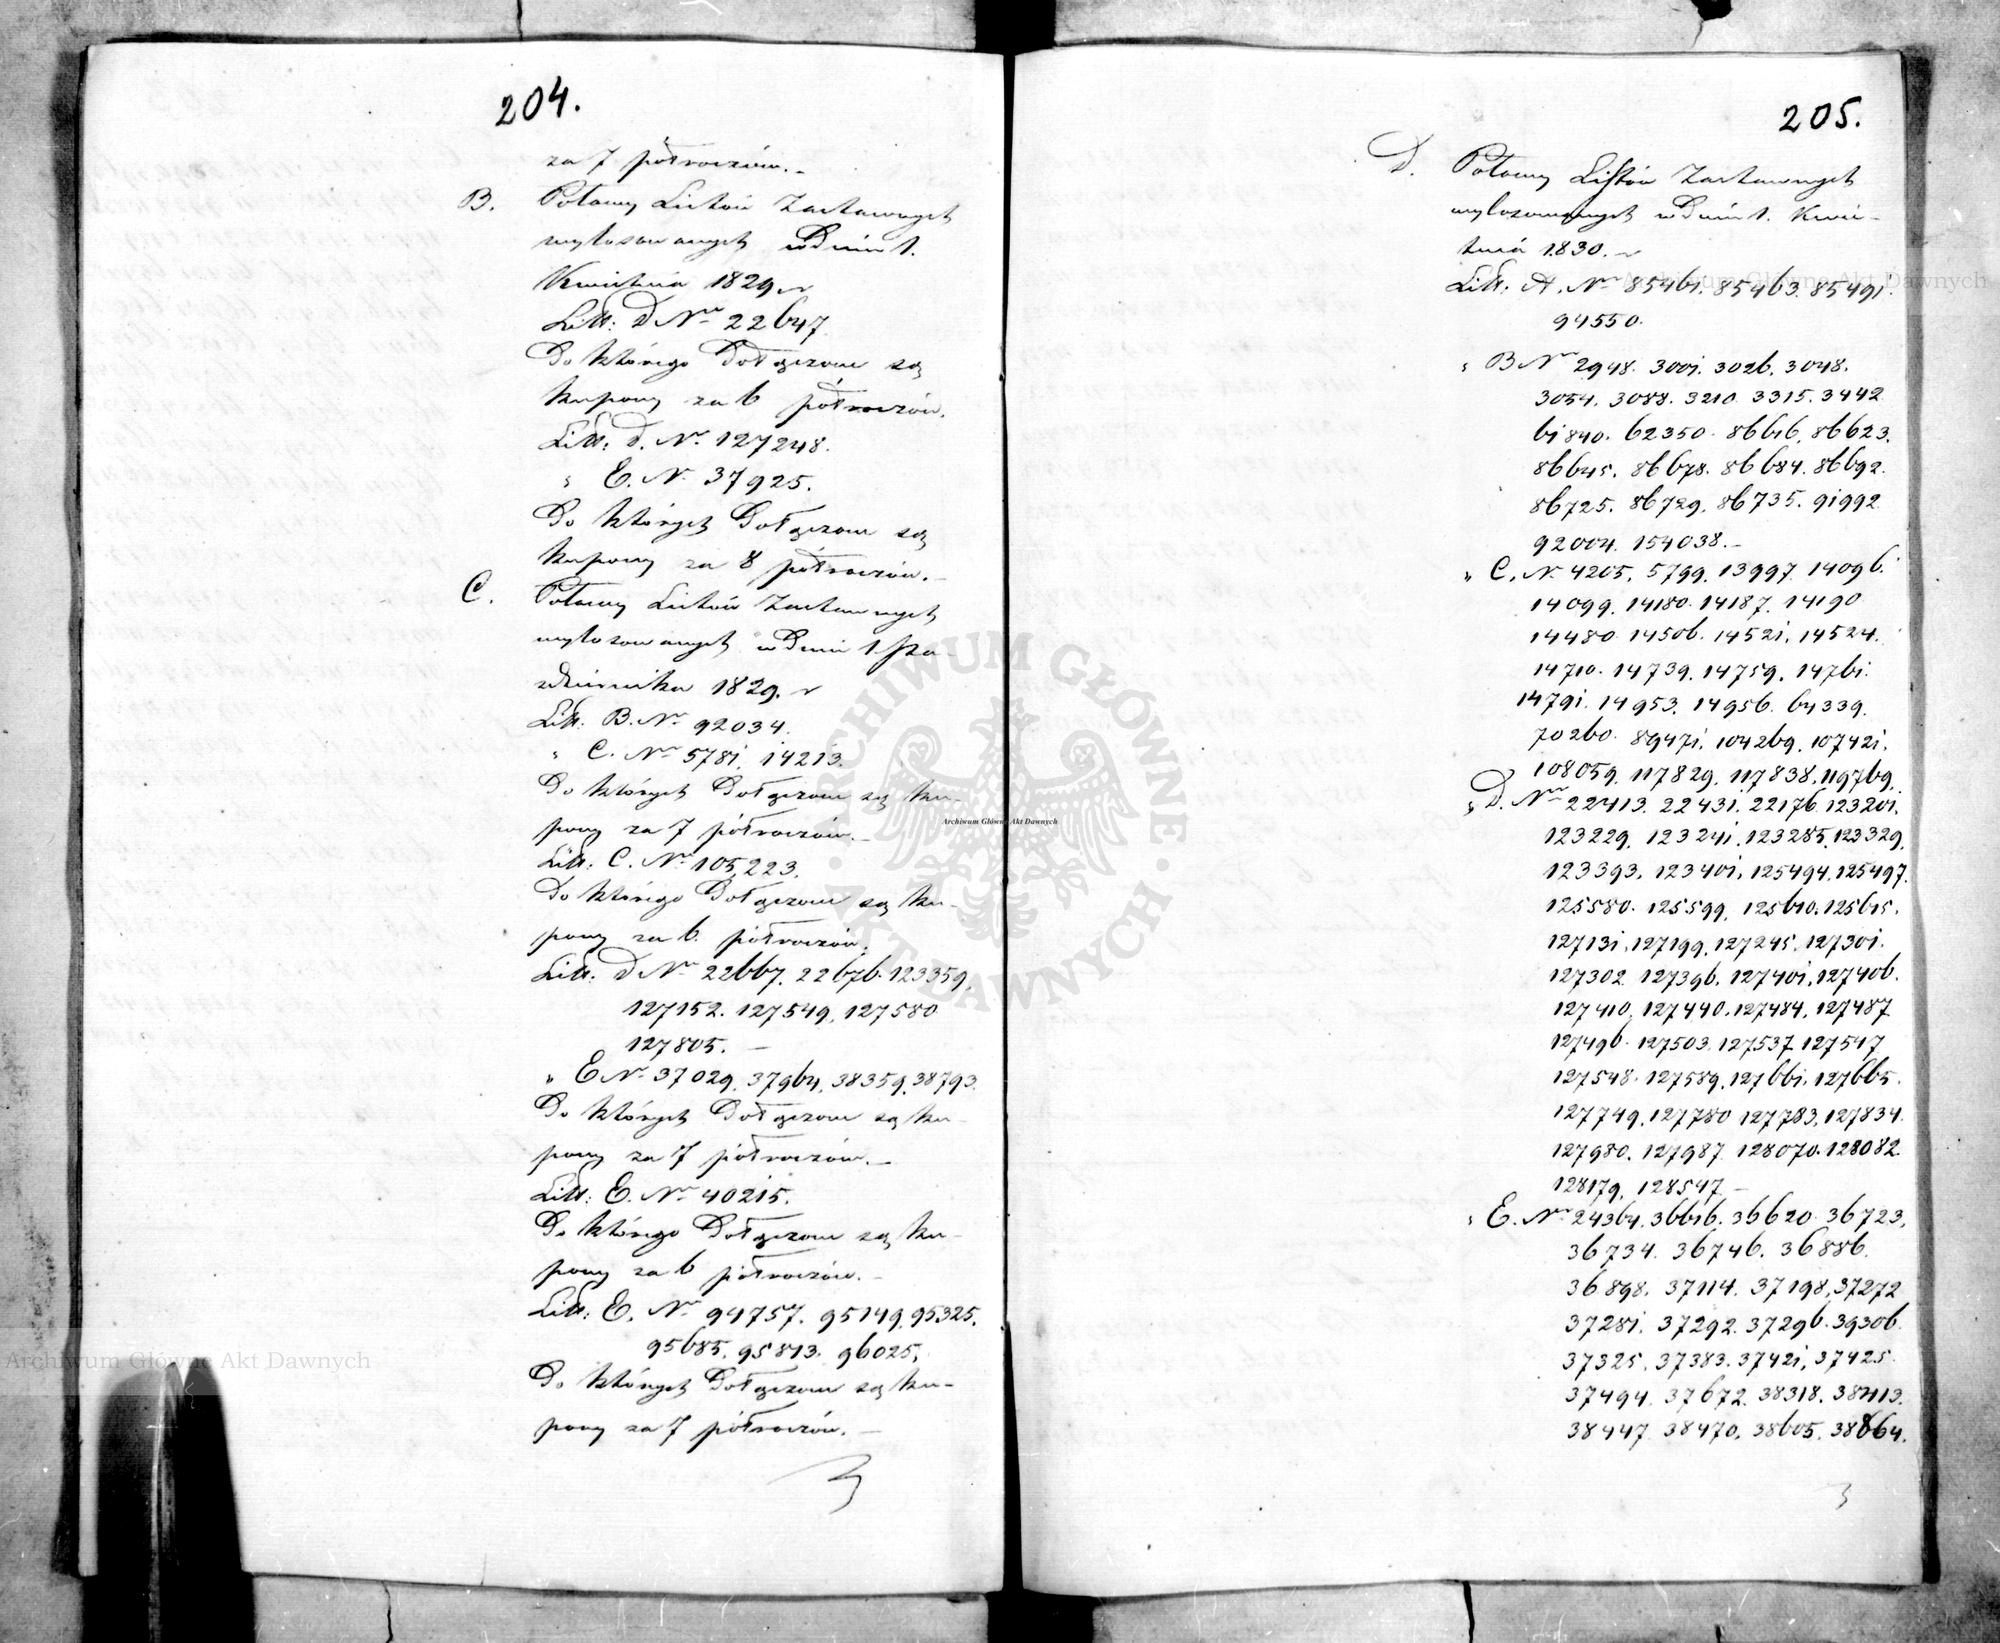 204.
za 7 półroczów. -
B. Połowy Listów Zastawnych
wylosowanych w Dniu 1.
Kwietnia 1829. r
Litt: D Nro 22647
Do którego Dołączone są
kupony za 6 półroczów.
Litt: D. Nr. 127248.
" E. Nr. 37925.
Do których Dołączone są
kupony za 8 półroczów. -
C. Połowy Listów Zastawnych
wylosowanych w Dniu 1 Pa-
ździernika 1829. r
Litt: B. Nr. 92034.
" C. Nro 5781. 14213.
Do których Dołączone są ku-
pony za 7 półroczów. -
Litt: C. Nro 105,223.
Do którego Dołączone są ku-
pony za 6. półroczów.
Litt: D Nro 22667. 22676. 123359.
127152. 127549. 127580
127805. -
" E Nr. 37029. 37964. 38359. 38793.
Do których Dołączone są ku-
pony za 7 półroczów. -
Litt: E. Nro 40215.
Do którego Dołączone są ku-
pony za 6 półroczów. -
Litt: E. Nro 94757. 95149. 95325.
95685. 95813. 96025.
Do których Dołączone są ku-
pony za 7 półroczów. -
205.
D. Połowy Listów Zastawnych
wylosowanych w Dniu 1. Kwie-
tnia 1830. r
Litt: A. Nro 85461. 85463. 85491.
94550.
" B Nro 2948. 3001. 3026. 3048.
3054. 3088. 3210. 3315. 3442
61840. 62350. 86616. 86623.
86645. 86678. 86684. 86692.
86725. 86729. 86735. 91992
92004. 154038. -
" C. Nr. 4205. 5799. 13997. 14096.
14099. 14180. 14187. 14190
14480. 14506. 14521. 14524.
14710. 14739. 14759. 14761.
14791. 14953. 14956. 64339.
70260. 89471. 104269. 107421.
108059. 117829. 117838. 119769.
" D. Nro 22413. 22431. 22176. 123201.
123229. 123241. 123285. 123329.
123393. 123401. 125494. 125497.
125580. 125599. 125610. 125615.
127131. 127199. 127245. 127301.
127302. 127396. 127401. 127406.
127410. 127440. 127484. 127487
127496. 127503. 127537. 127547
127548. 127589. 127661. 127665.
127749. 127780. 127783. 127834.
127980. 127987. 128070. 128082.
128179. 128547. -
" E. Nro 24364. 36616. 36620. 36723.
36734. 36746. 36886.
36898. 37114. 37198. 37272
37281. 37292. 37296. 39306.
37325. 37383. 37421. 37425.
37494. 37672. 38318. 38413.
38447. 38470. 38605. 38864.
Archiwum Główne Akt Dawnych
ARCHIWUM GŁÓWNE
AKT DAWNYCH
Archiwum Główne Akt Dawnych
Archiwum Główne Akt Dawnych